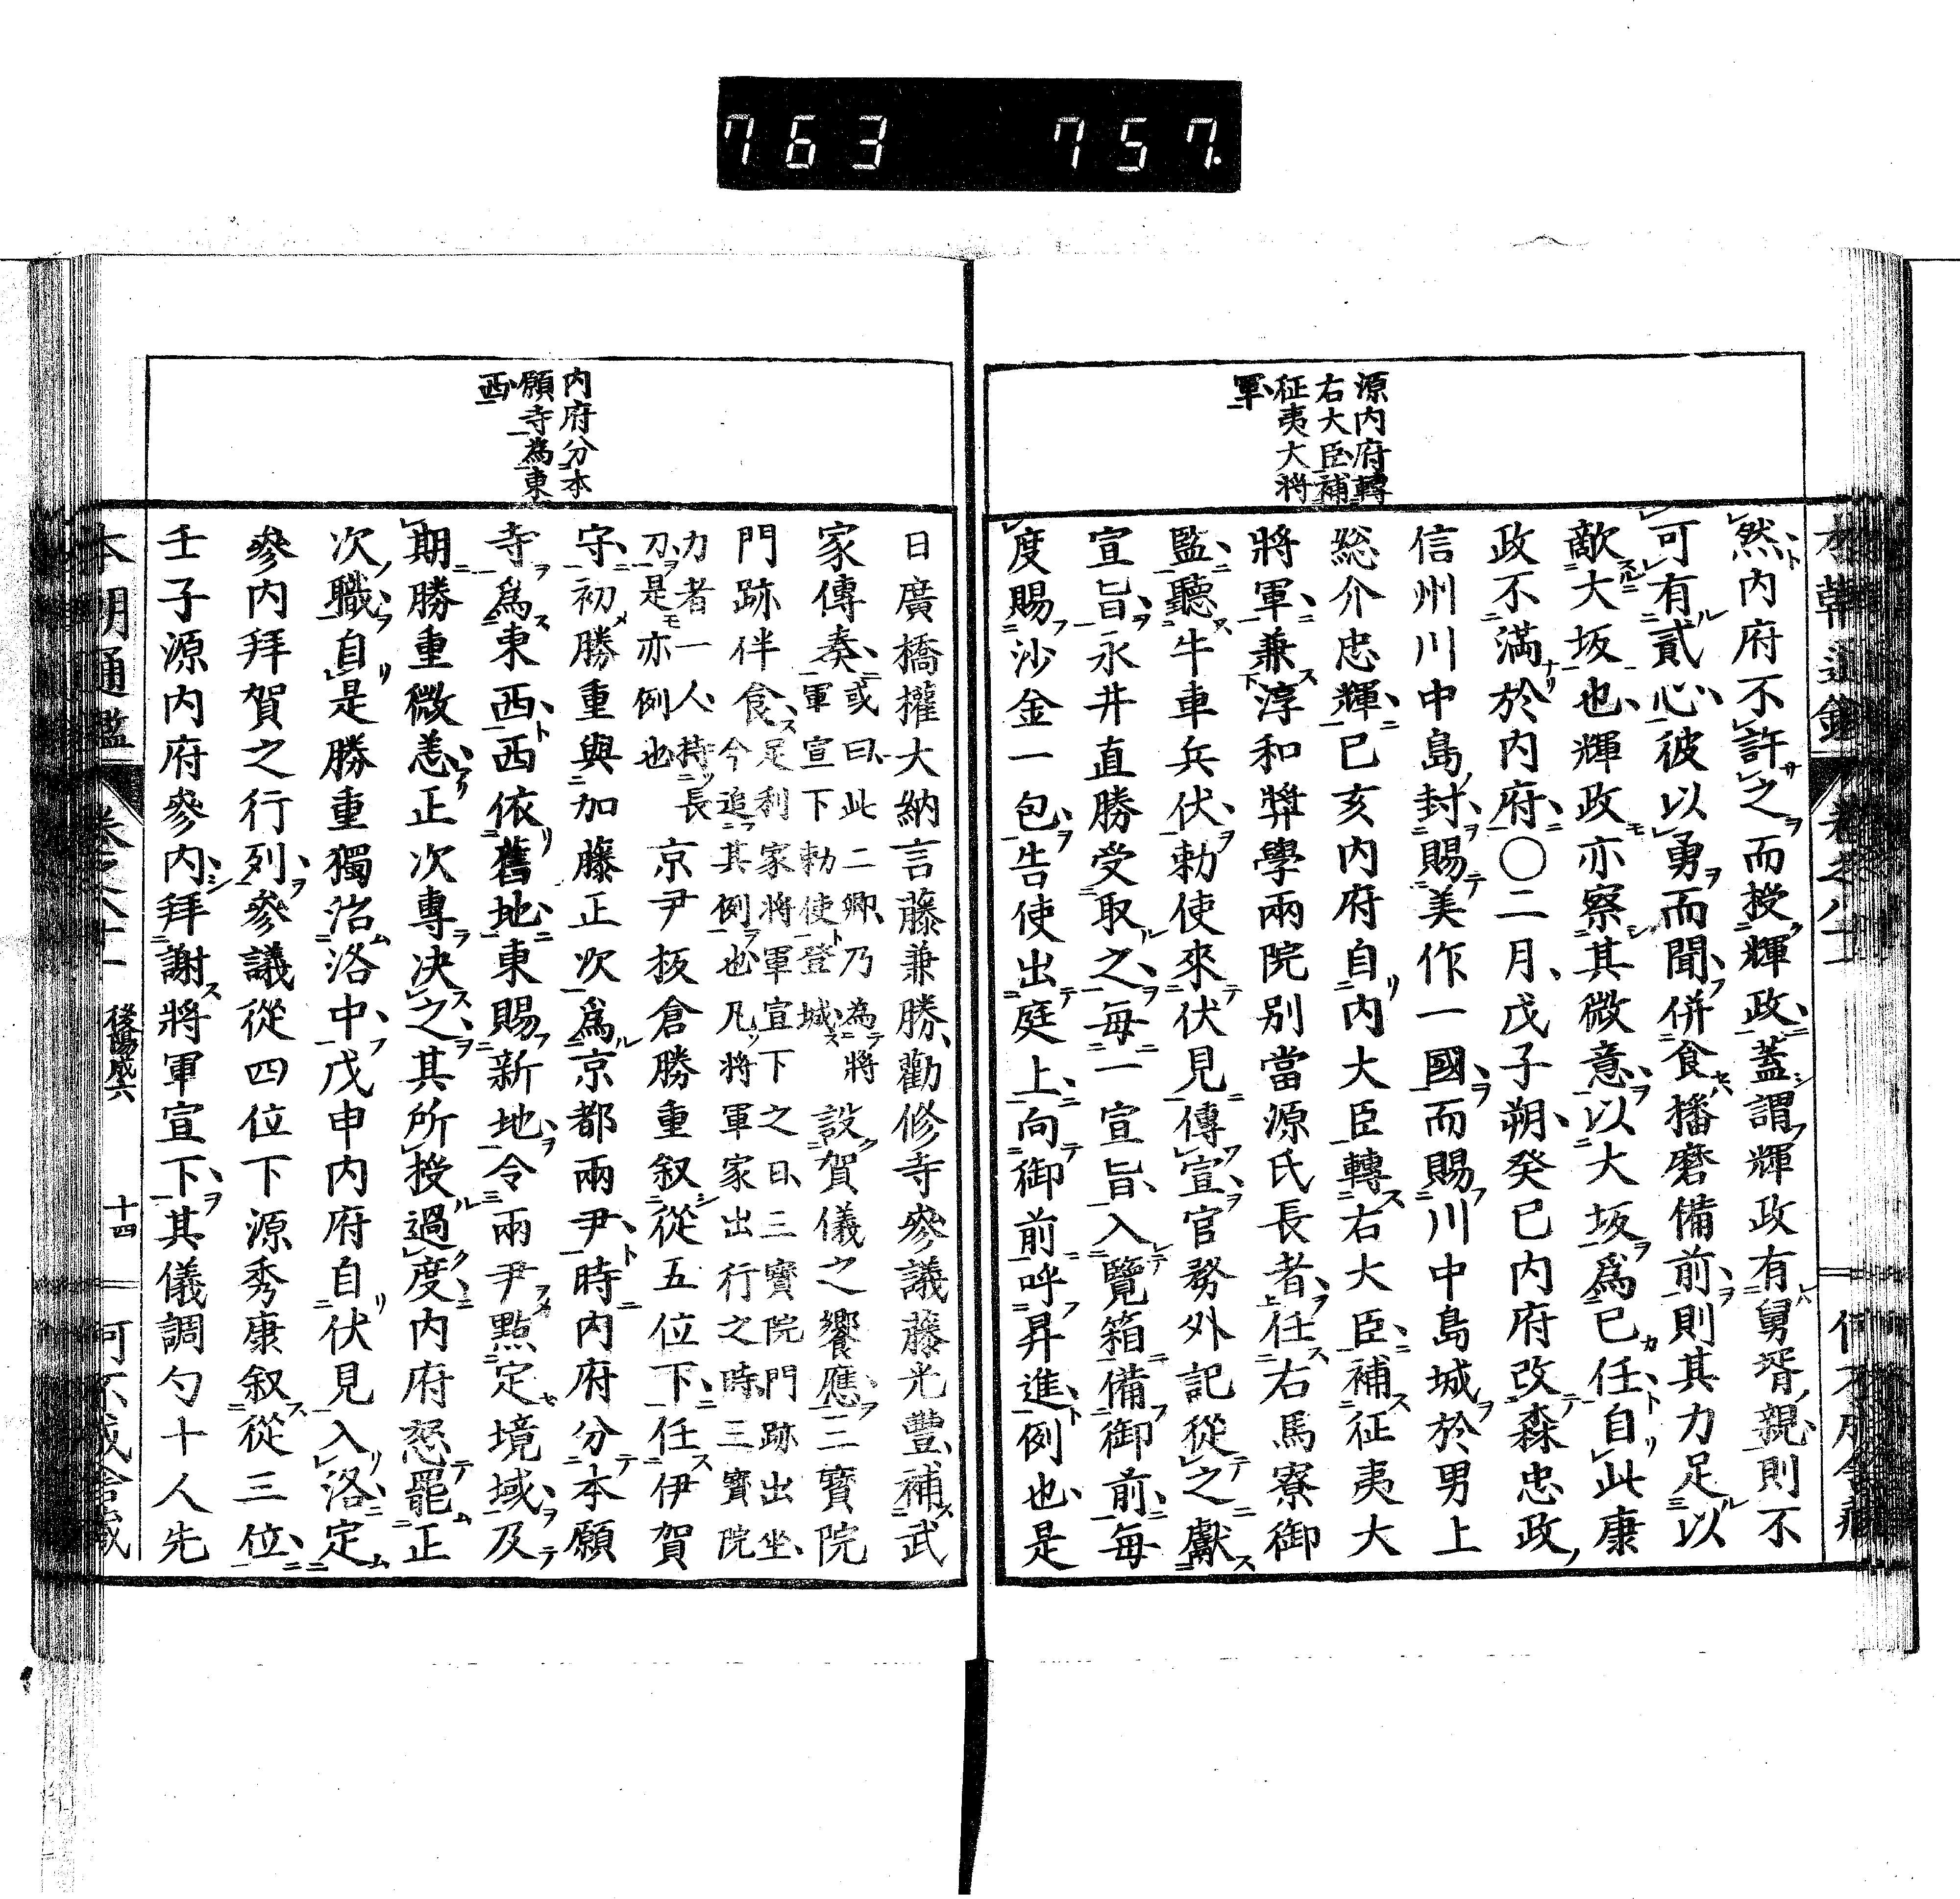 763 757.
源内府轉
右大臣補
征夷大將
軍
然内府不許之而授輝政蓋謂輝政有舅壻親則不
可有貳心彼以勇而聞併食播磨備前則其力足以
敵大坂也輝政亦察其微意以大坂爲己任自此康
政不滿於内府〇二月戊子朔癸巳内府改森忠政
信州川中島封賜美作一國而賜川中島城於男上
総介忠輝己亥内府自内大臣轉右大臣補征夷大
將軍兼淳和弉學兩院別當源氏長者任右馬寮御
監聽牛車兵伏勅使來伏見傳宣官務外記從之獻
宣旨永井直勝受取之每一宣旨入覽箱備御前每
度賜沙金一包告使出庭上向御前呼昇進例也是
内府分本
願寺為東
西
日廣橋權大納言藤兼勝勸修寺參議藤光豐補武
家傳奏或曰此二卿乃為將軍宣下勅使登城設賀儀之饗應三寳院
門跡伴食足利家將軍宣下之日三寳院門跡出坐今追其例也凡將軍家出行之時三寳院
力者一人持長刀是亦例也京尹板倉勝重叙從五位下任伊賀
守初勝重與加藤正次爲京都兩尹時内府分本願
寺爲東西西依舊地東賜新地令兩尹點定境域及
期勝重微恙正次專決之其所授過度内府怒罷正
次職自是勝重獨治洛中戊申内府自伏見入洛定
參内拜賀之行列參議從四位下源秀康叙從三位
壬子源内府參内拜謝將軍宣下其儀調勺十人先
本朝通鑑 卷之八十一 後陽成六 十四